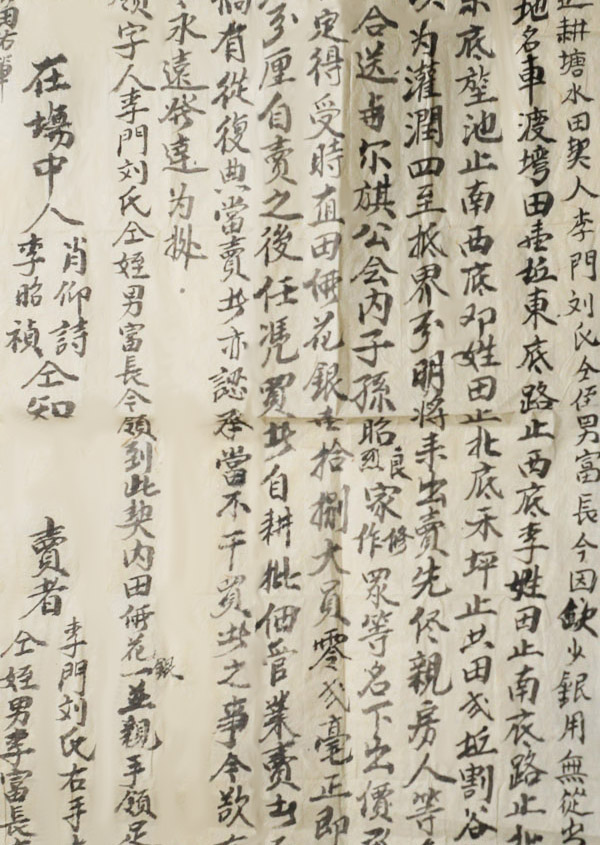 耕塘水田契人李門刘氏仝侄男富長今因缺少銀用無從出
地名車渡塆田壹坵東底路止西底李姓田止南底路止北
底塟池止南西底邓姓田止北底禾坪止共田弍坵割谷
为灌潤四至抵界分明將来出賣先侭親房人等
合送与尔旗公会内子孫昭良烈家修作眾等名下出價
定得受時直田価花銀壹拾捌大員零弍毫正即
分厘自賣之後任凭買者自耕批佃管業賣者
倘有從復典當賣者亦認承當不干買者之事今欲
永遠發達为拠
領字人李門刘氏仝姪男富長今領到此契内田価花銀一並親手領足
在塲中人
肖仰詩
李昭禎
仝知
賣者
李門刘氏右手
仝姪男李富長